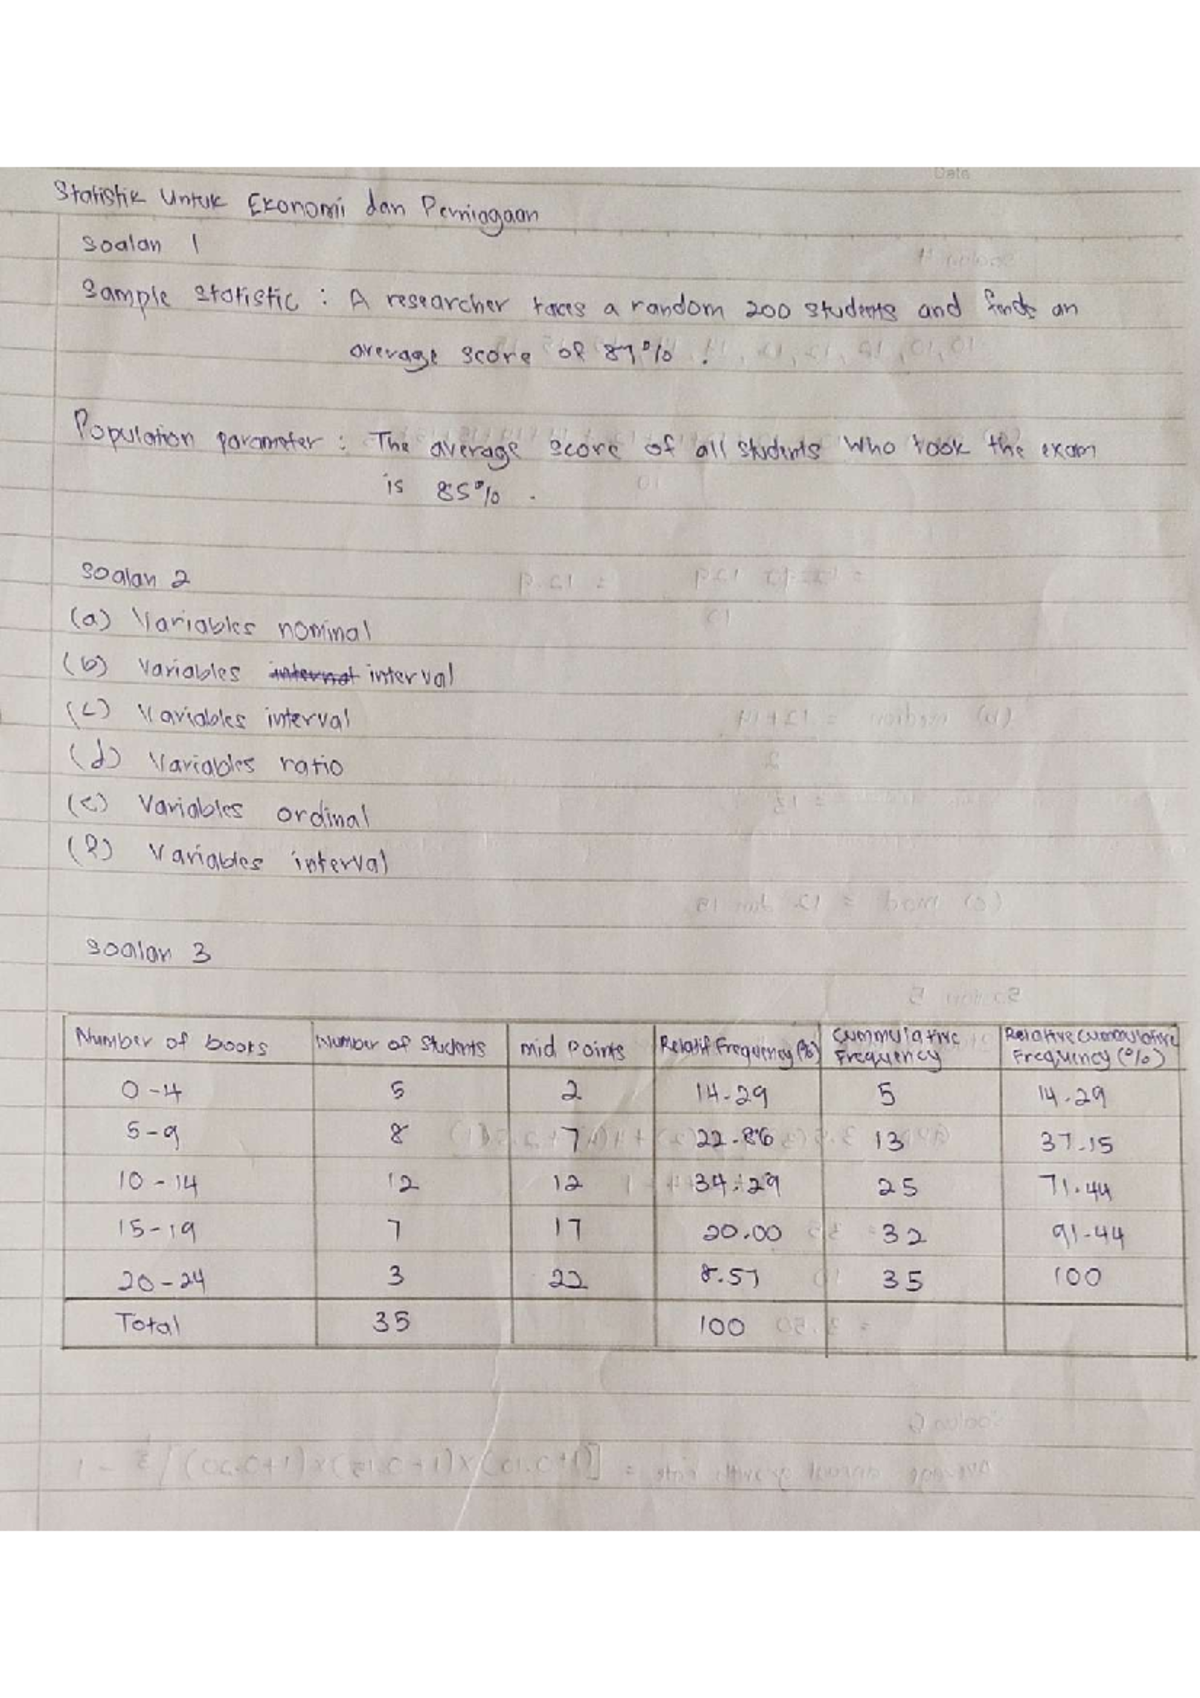 Date
Statistik Untuk Ekonomi dan Perniagaan
Soalan 1
Sample statistic : A researcher takes a random 200 students and finds an
average score of 87% .
Population parameter : The average score of all students who took the exam
is 85% .
Soalan 2
(a) Variables nominal
(b) Variables interval
(c) Variables interval
(d) Variables ratio
(e) Variables ordinal
(f) Variables interval
Soalan 3
Number of books Number of students mid Points Relatif frequency (%) Cummulative Frequency Relative cummulative Frequency (%)
0-4 5 2 14.29 5 14.29
5-9 8 7 22.86 13 37.15
10-14 12 12 34.29 25 71.44
15-19 7 17 20.00 32 91.44
20-24 3 22 8.57 35 100
Total 35 100